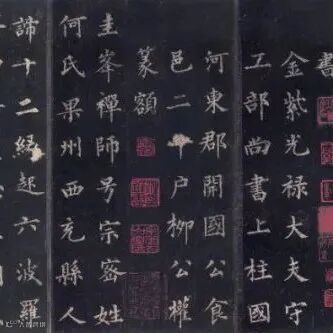 書
金紫光禄大夫守
工部尚書上柱國
河東郡開國公食
邑二千户柳公權
篆額
圭峯禪師号宗密姓
何氏果州西充縣人
諦十二緣起六波羅